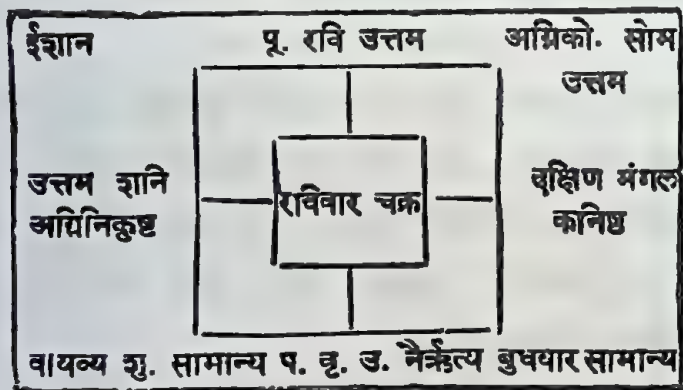 ईशान पू. रवि उत्तम अग्निको. सोम
उत्तम
उत्तम शनि दक्षिण मंगल
अग्निनिकुष्ट रविवार चक्र कनिष्ठ
वायव्य शु. सामान्य प. वृ. उ. नैर्ऋत्य बुधवार सामान्य